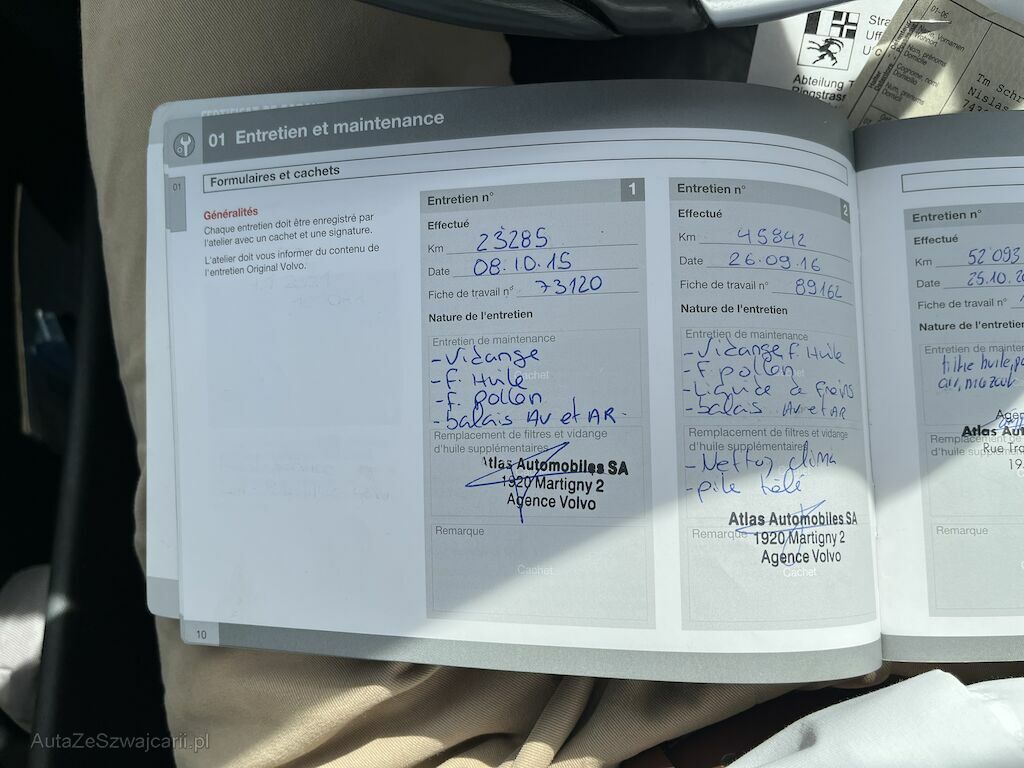 01-06
Stra
Uff
Abteilung T
Ringstrass
Tm Schr
Nislas
01 Entretien et maintenance
Formulaires et cachets
01
Généralités
Chaque entretien doit être enregistré par
l'atelier avec un cachet et une signature.
L'atelier doit vous informer du contenu de
l'entretien Original Volvo.
10
Entretien n° 1
Effectué
Km 23285
Date 08.10.15
Fiche de travail n° 73120
Nature de l'entretien
Entretien de maintenance
-Vidange
-F. Huile
Cachet
-F. pollen
-balais AV et AR.
Remplacement de filtres et vidange
d'huile supplémentaires
Atlas Automobiles SA
1920 Martigny 2
Agence Volvo
Remarque
Cachet
Entretien n° 2
Effectué
Km 45842
Date 26.09.16
Fiche de travail n° 89162
Nature de l'entretien
Entretien de maintenance
-Vidange F. Huile
-F. pollen
Cachet
-Liquide à freins
-balais AV et AR
Remplacement de filtres et vidange
d'huile supplémentaires
-Nettoy clima
-pile télé
Atlas Automobiles SA
1920 Martigny 2
Agence Volvo
Remarque
Cachet
Entretien n°
Effectué
Km 52093
Date 25.10.20
Fiche de travail n°
Nature de l'entretien
Entretien de mainten
filtre huile, po
air, mazout
Agen
Atlas Aut
Rue Tra
19
Remplacement de
d'huile supplémen
Remarque
AutaZeSzwajcarii.pl